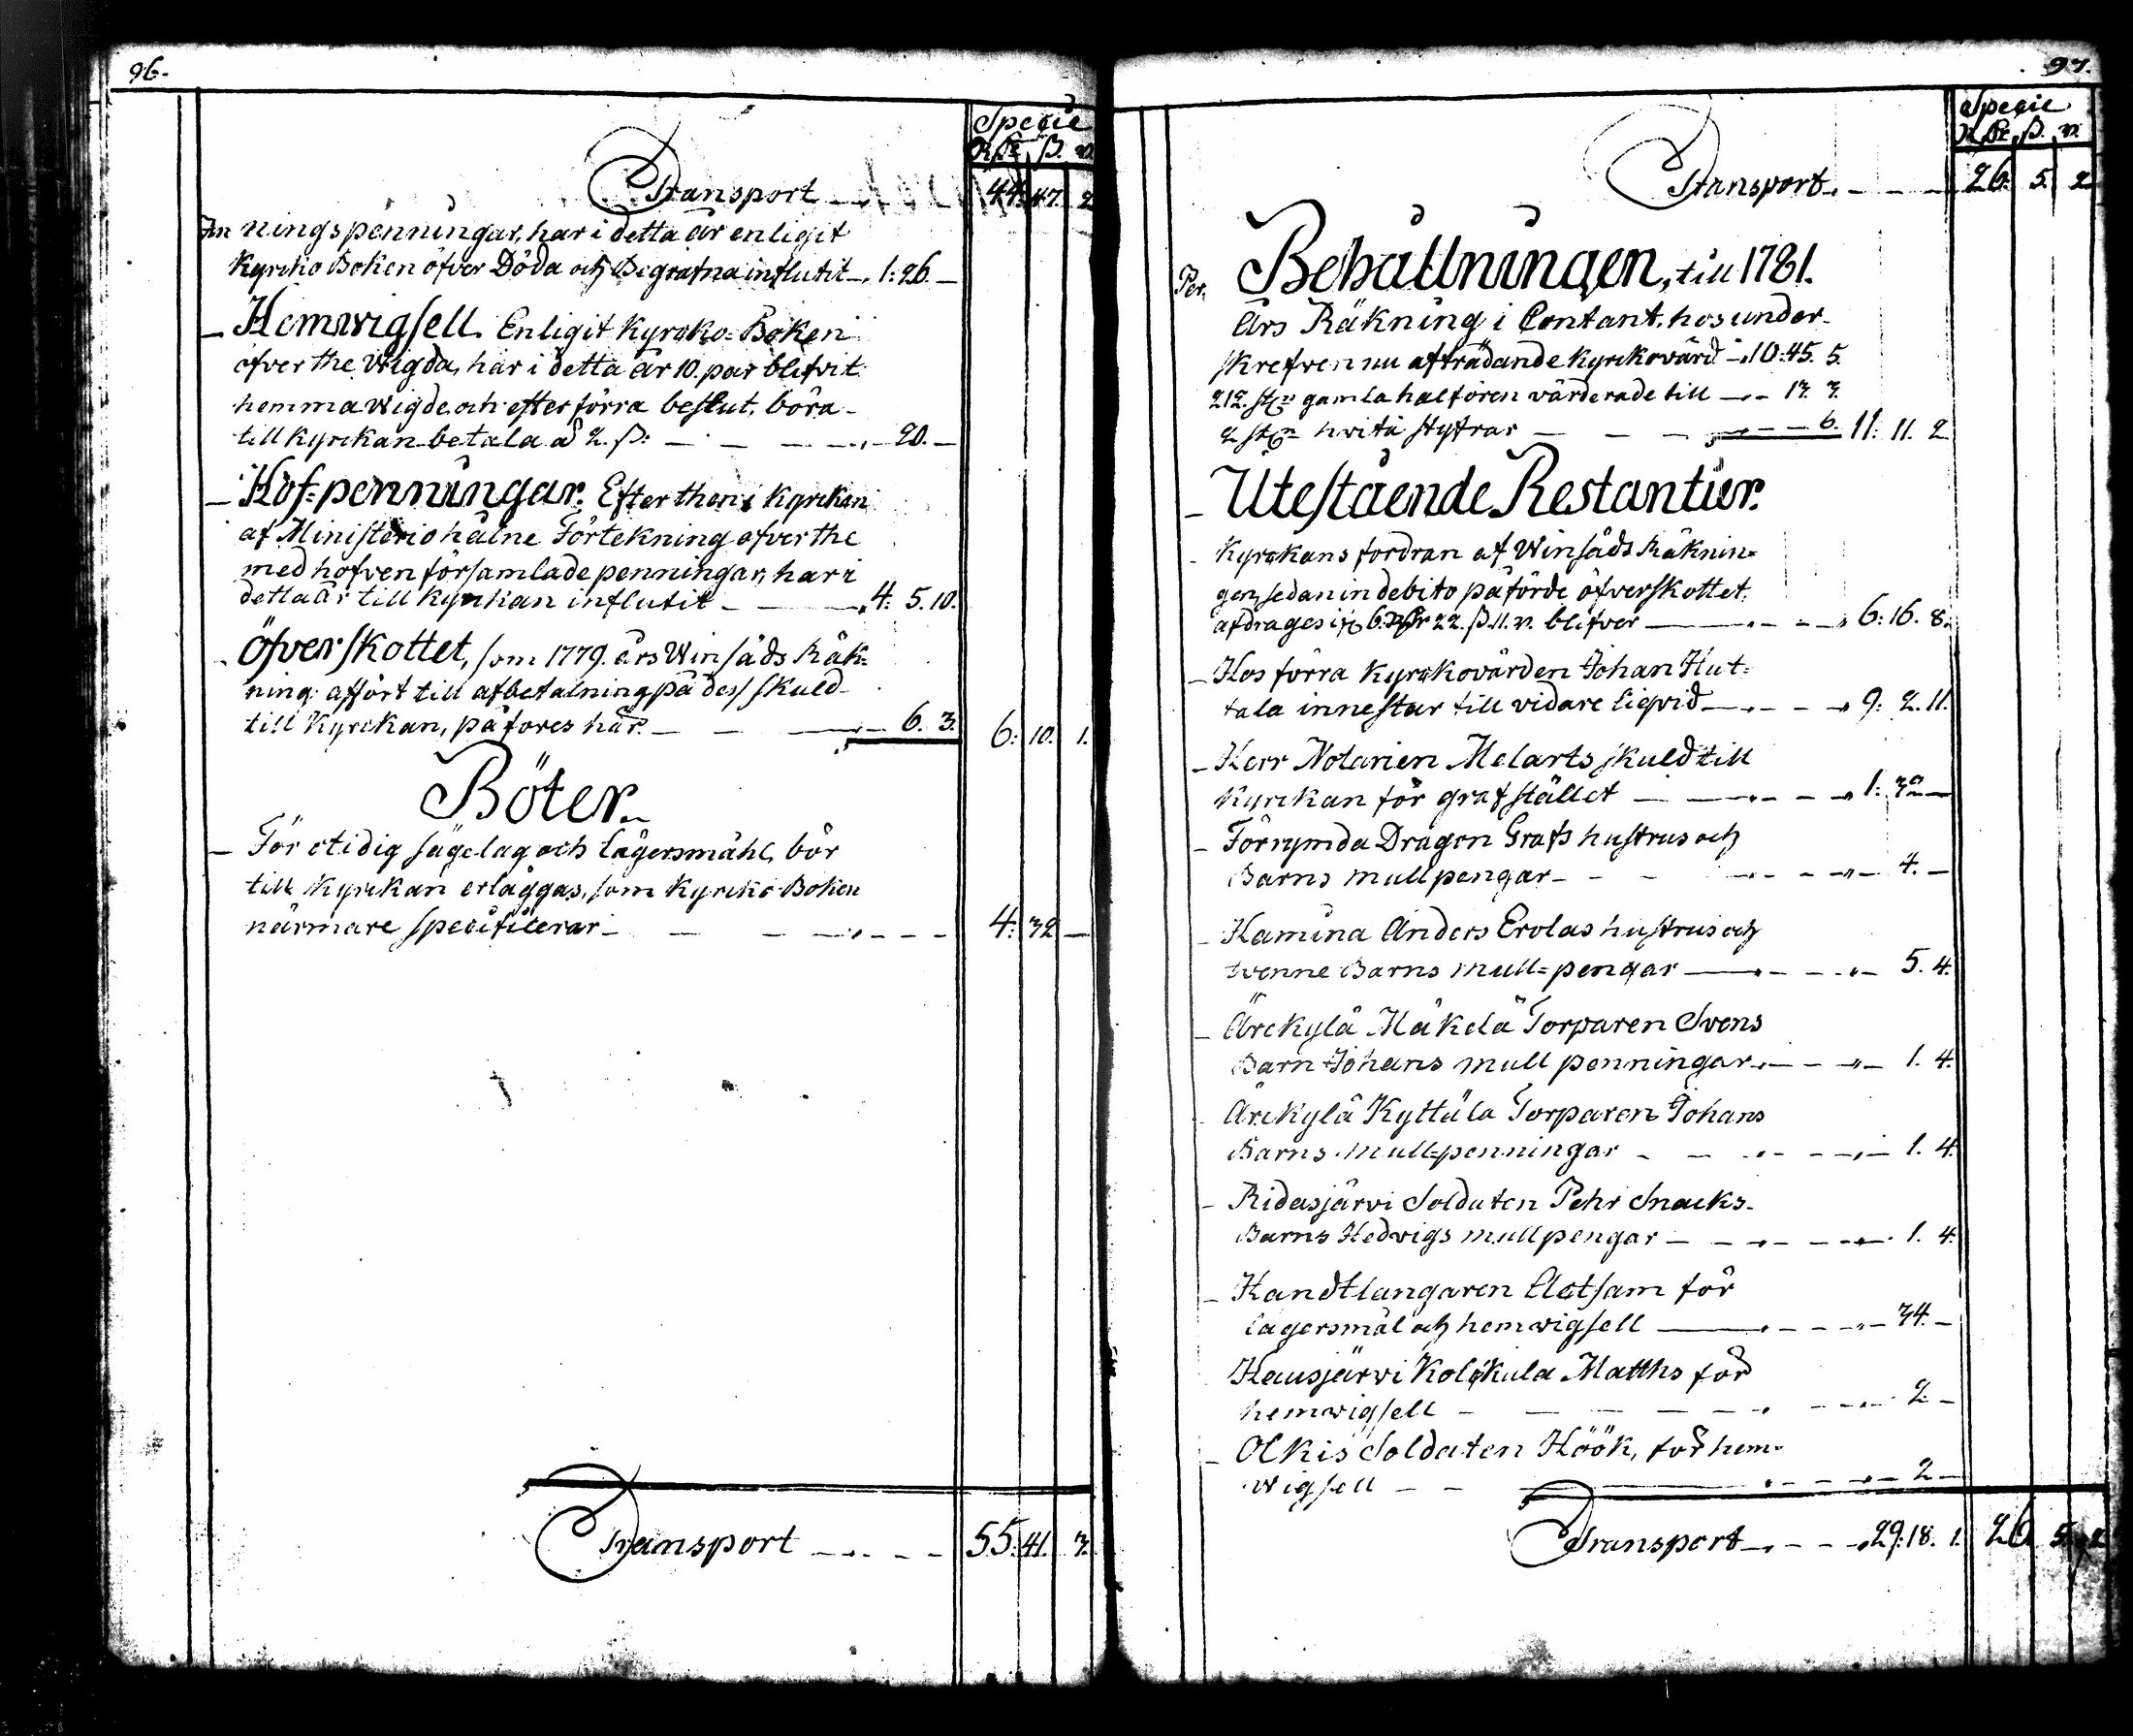 96.
Specie
R.dr. ß. rt.
Transport 44. 47. 2
An ningspenningar, har i detta år enligit
Kyrcko Boken öfver Döda och Begrafna influtit 1: 26. —
— Hemwigsell. Enligit Kyrcko-Boken
öfver the Wigda, har i detta år 10. par blifvit
hemma wigde och efter förra beslut, böra
till Kyrckan betala à 2. ß: — 20. —
— Hof-penningar. Efter then i Kyrckan
af Ministerio hålne Förtekning öfver the
med hofven församlade penningar, har i
detta år till Kyrckan influtit — 4: 5. 10.
Öfverskottet, som 1779. års Winsåds Räk-
ning affört till afbetalning på dess skuld
till Kyrckan, påföres här. — 6. 3. 6: 10. 1.
Böter.
— För otidig sägelag och lägersmåhl, bör
till Kyrckan erläggas, som Kyrcko-Boken
närmare specificerar — 4: 32 —
Transport — 55: 41. 3.
97.
Specie
R.dr. ß. rt.
Transport. — 26. 5. 2
Per. Behållningen, till 1781.
års Räkning i Contant, hos under-
skrefven nu afträdande Kyrckovärd — 10: 45. 5.
212. st. gamla halfören värderade till — 13. 3.
2 st. hvita styfrar — 6. 11: 11. 2
— Utestående Restantier.
Kyrckans fordran af Winsåds Räknin-
gen, sedan in debito påförde öfverskottet,
afdrages 6. Rdr 22. ß. 11. rt. blifver — 6: 16. 8.
— Hos förra Kyrckovärden Johan Hut-
tala innestar till vidare liqvid — 9: 2. 11.
— Herr Notarien Melarts skuld till
Kyrckan för grafstället — 1: 32 —
— Förrymda Dragon Grafs hustrus och
Barns mullpengar — 4. —
— Hamina Anders Erolas hustrus och
tvenne Barns mull-pengar — 5. 4.
— Ärekylä Mäkelä Torparen Svens
Barn Johans mull penningar — 1. 4.
Ärekylä Kyttälä Torparen Johans
Barns mull-penningar — 1. 4.
— Ridasjärvi Soldaten Pehr Snacks
Barns Hedvigs mullpengar — 1. 4.
— Handtlangaren Eletsam för
lägersmål och hemwigsell — 34. —
Hausjärvi Kolkkula Matths för
hemwigsell — 2 —
— Olkis Soldaten Höök, för hem-
wigsell — 2 —
Transport — 29: 18. 1. 26 5. 2